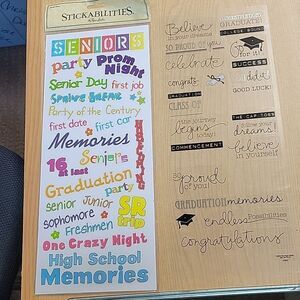 STICKABILITIES
SENIORS
party Prom
Night
Senior Day first job
Senior Break
Party of the Century
first date first car
Memories
16
at last
Seniors
Graduation
party
senior Junior
sophomore
SR
trip
Freshmen
One Crazy Night
High School
Memories
Believe
in your dreams
GRADUATE
COLLEGE BOUND
SO PROUD OF YOU
go for it!
celebrate
SUCCESS
congrats
GRADUATION
GOOD LUCK!
CLASS OF
the journey
begins
today!
COMMENCEMENT
THE CAP TOSS
dreams!
believe
in yourself
so
proud
of you!
GRADUATION memories
endless Possibilities
congratulations